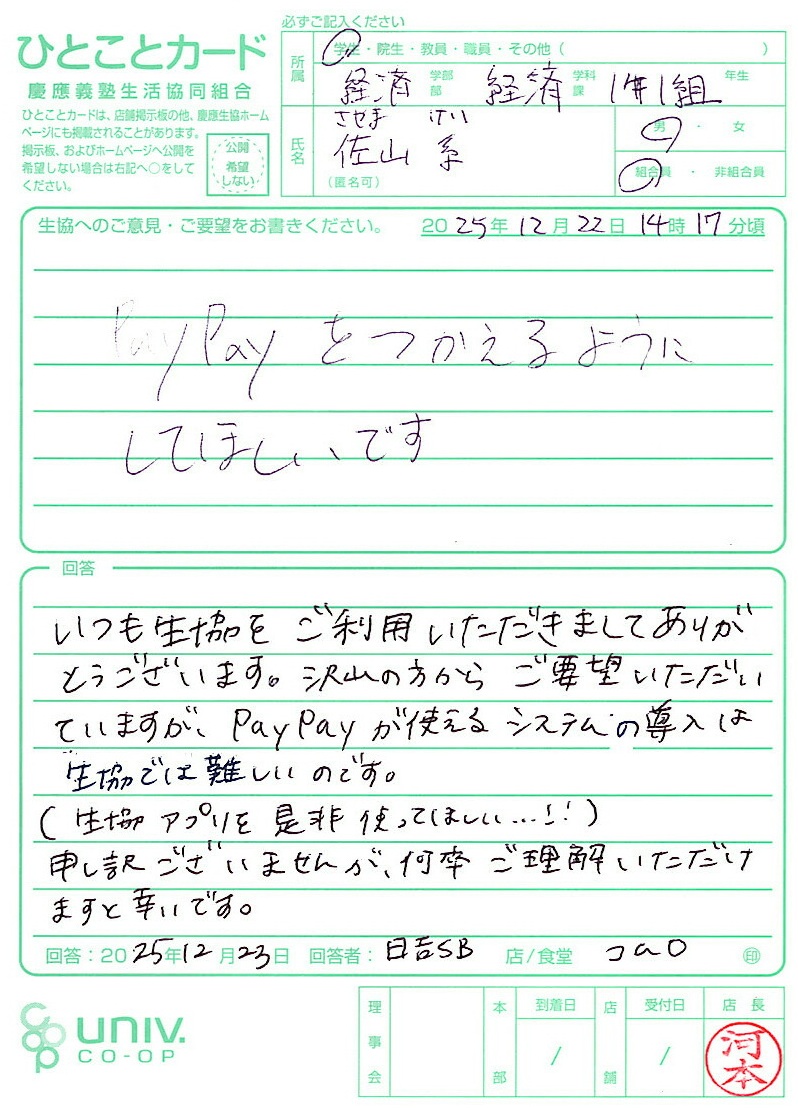 必ずご記入ください
ひとことカード
慶應義塾生活協同組合
ひとことカードは、店舗掲示板の他、慶應生協ホーム
ページにも掲載されることがあります。
掲示板、およびホームページへ公開を
希望しない場合は右記へ○をして
ください。
公開
希望
しない
所属
学生・院生・教員・職員・その他（ ）
経済 学部 部 経済 学科 課 1年1組 年生
氏名
させま けい
佐山 系
（匿名可）
男 ・ 女
組合員 ・ 非組合員
生協へのご意見・ご要望をお書きください。 2025年12月22日14時17分頃
PayPayをつかえるように
してほしいです
回答
いつも生協をご利用いただきましてありが
とうございます。沢山の方からご要望いただい
ていますが、PayPayが使えるシステムの導入は
生協では難しいのです。
(生協アプリを是非使ってほしい...!!)
申し訳ございませんが、何卒ご理解いただけ
ますと幸いです。
回答：2025年12月23日 回答者：日吉SB 店/食堂 印
univ.
CO-OP
理事会
本部
到着日
/
店舗
受付日
/
店長
河本